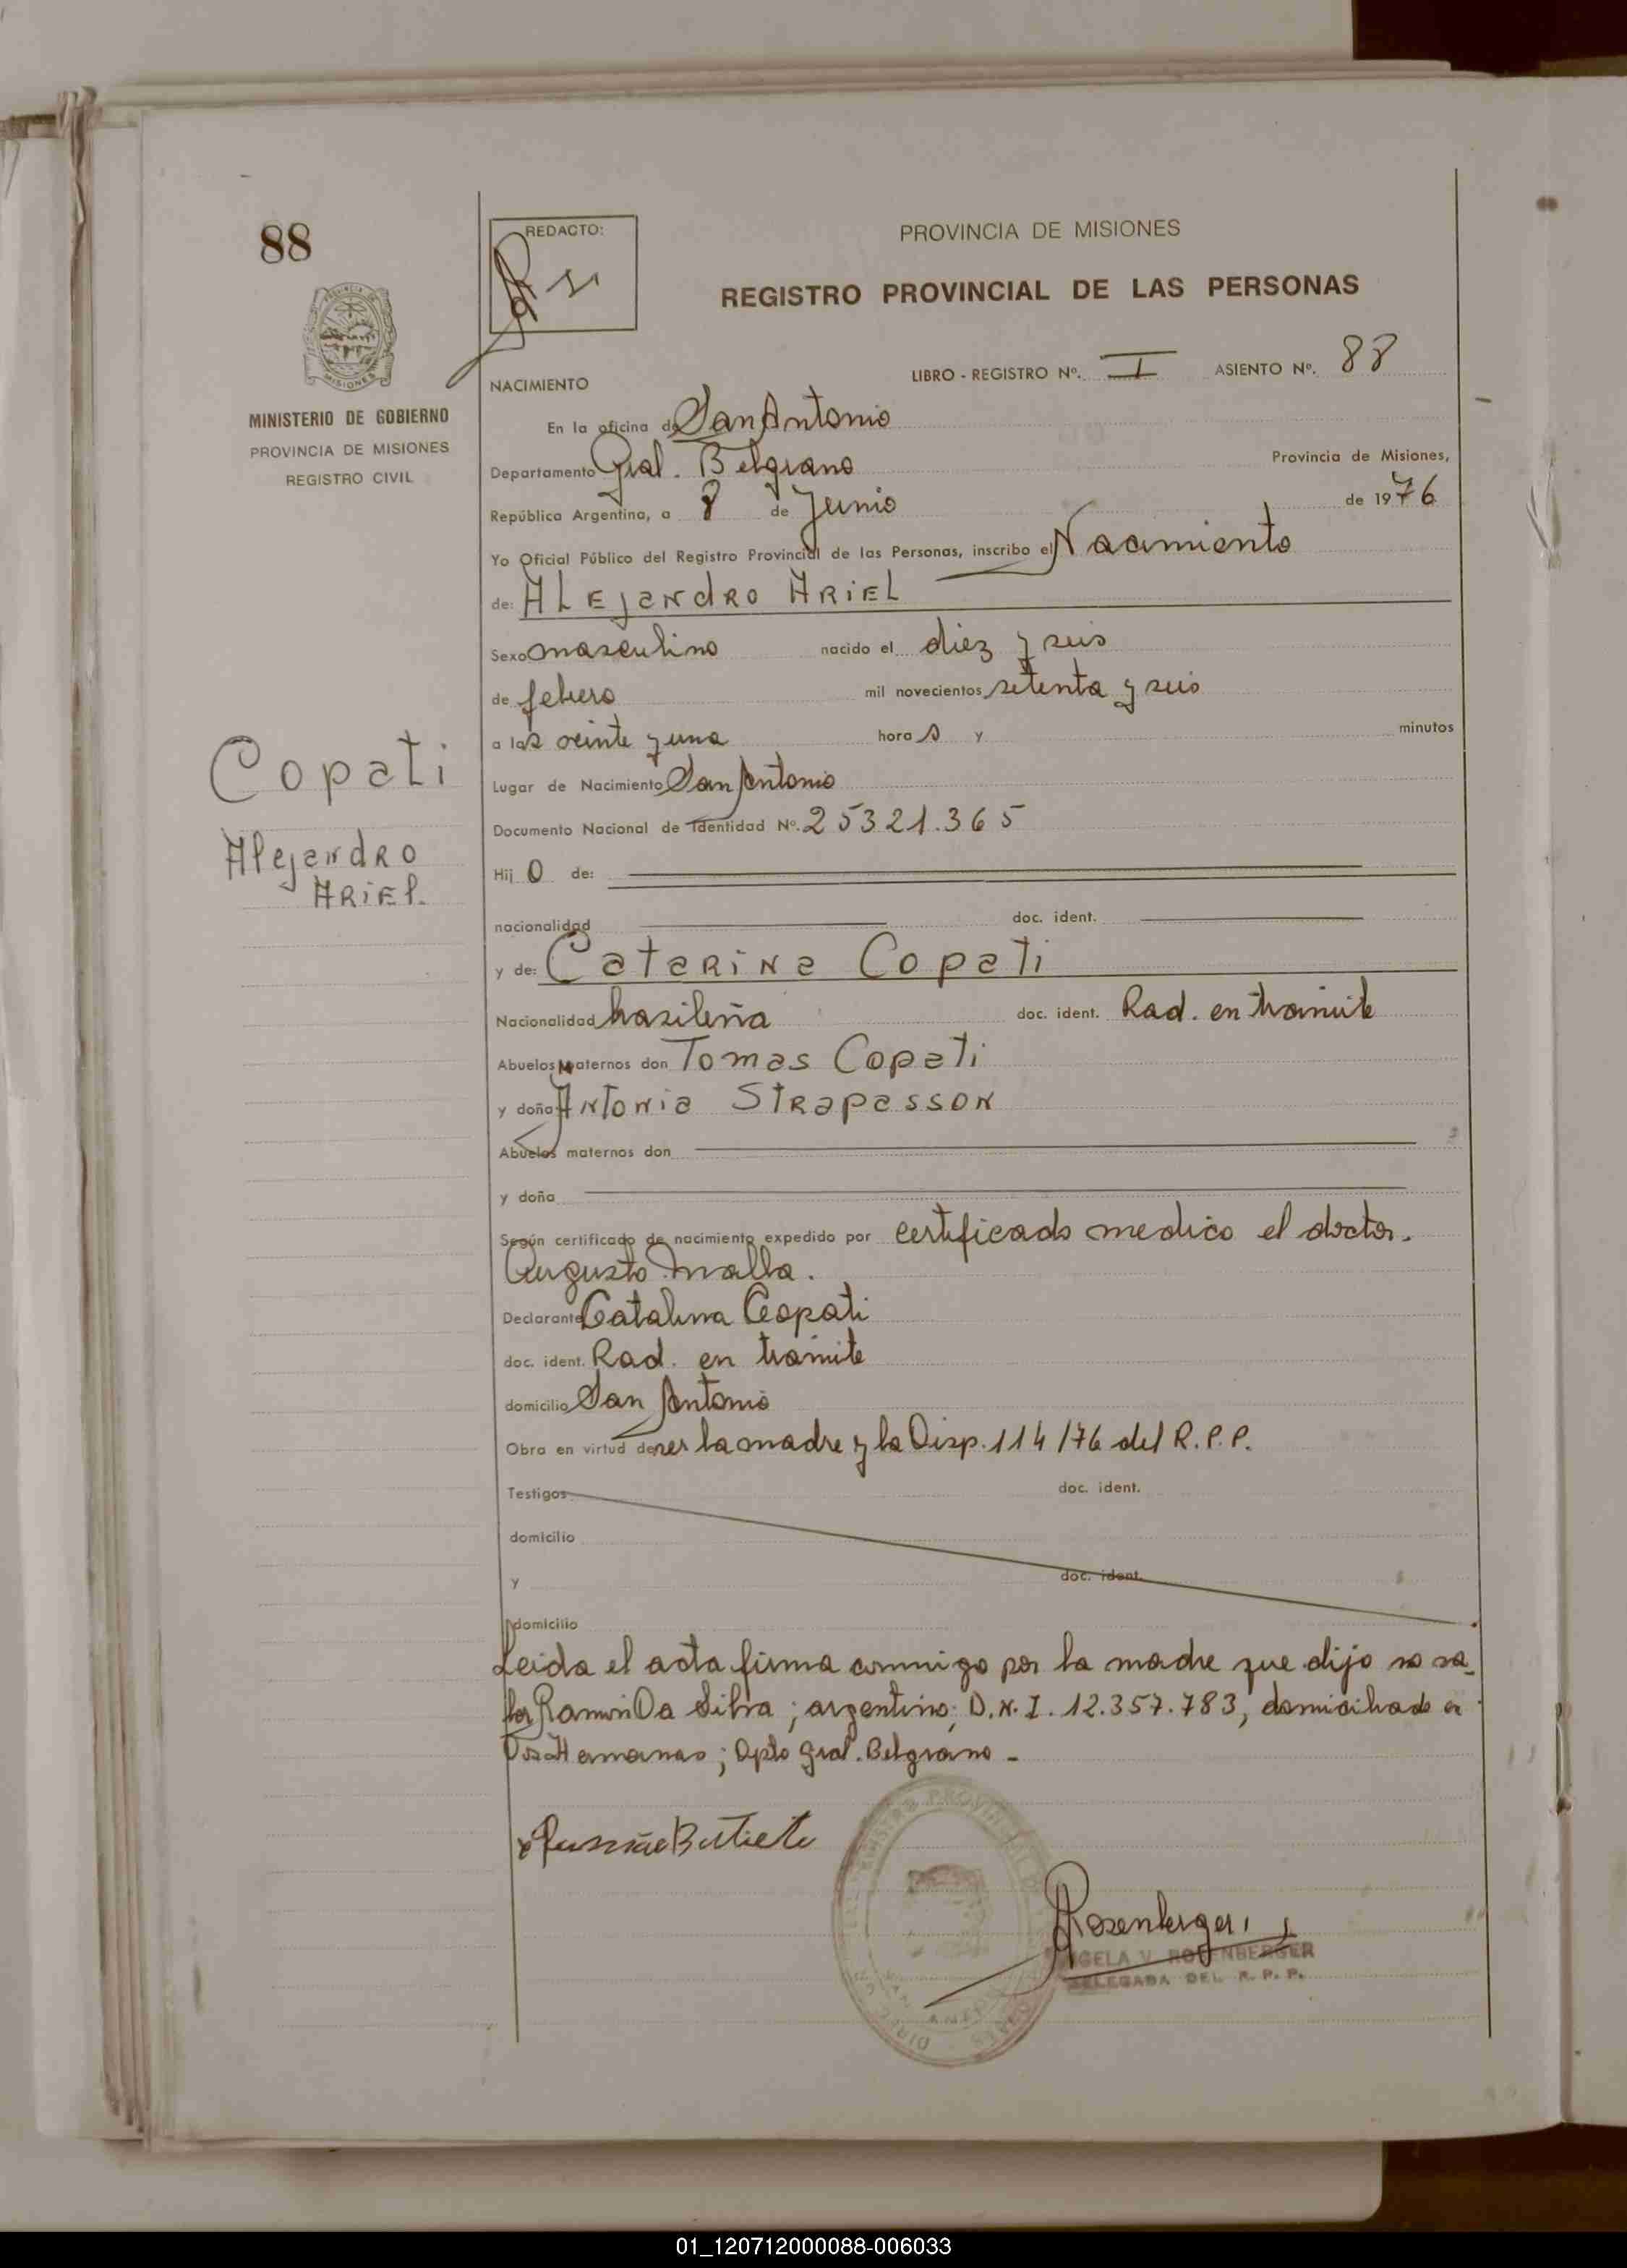 88
REDACTO:
PROVINCIA DE MISIONES
REGISTRO PROVINCIAL DE LAS PERSONAS
LIBRO - REGISTRO Nº. I ASIENTO Nº. 88
PROVINCIA DE MISIONES
MINISTERIO DE GOBIERNO
PROVINCIA DE MISIONES
REGISTRO CIVIL
NACIMIENTO
En la oficina de San Antonio
Departamento Gral. Belgrano Provincia de Misiones,
República Argentina, a 8 de Junio de 1976
Yo Oficial Público del Registro Provincial de las Personas, inscribo el Nacimiento
de: ALEjandRO ARiEL
Sexo masculino nacido el diez y seis
de febrero mil novecientos setenta y seis
a las veinte y una horas y minutos
Copati
Alejandro
ARiEl.
Lugar de Nacimiento San Antonio
Documento Nacional de Identidad Nº. 25321.365
Hij O de:
nacionalidad doc. ident.
y de: CataRiNa Copati
Nacionalidad brasileña doc. ident. Rad. en tramite
Abuelos Maternos don Tomas Copati
y doña ANtoNia StRapassoN
Abuelos maternos don
y doña
Según certificado de nacimiento expedido por certificado medico el doctor.
Augusto Malla.
Declarante Catalina Copati
doc. ident. Rad. en tramite
domicilio San Antonio
Obra en virtud de ser la madre y la Disp. 114/76 del R.P.P.
Testigos doc. ident.
domicilio
y doc. ident.
domicilio
Leida el acta firma conmigo por la madre que dijo no sa-
ber Ramon Da Silva; argentino; D.N.I. 12.357.783, domiciliado en
Dos Hermanas; Dpto Gral. Belgrano -
Rosenberger
ANGELA V. ROSENBERGER
DELEGADA DEL R. P. P.
01_120712000088-006033